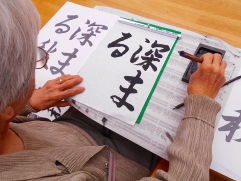 深まる
深まる